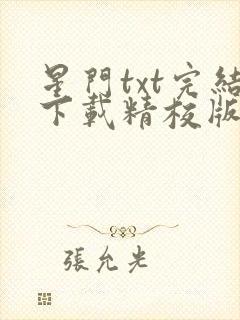 星門txt完結
下載精校版
張允光